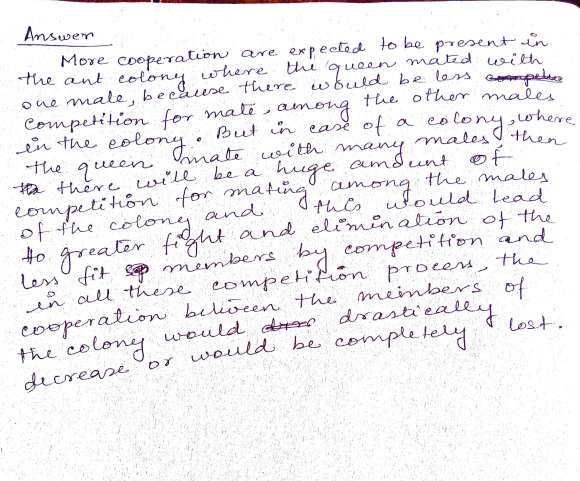 Answer
More cooperation are expected to be present in
the ant colony where the queen mated with
one male, because there would be less
competition for mate, among the other males
in the colony. But in case of a colony, where
the queen mate with many males, then
there will be a huge amount of
competition for mating among the males
of the colony and this would lead
to greater fight and elimination of the
less fit members by competition and
in all these competition process, the
cooperation between the members of
the colony would drastically
decrease or would be completely lost.